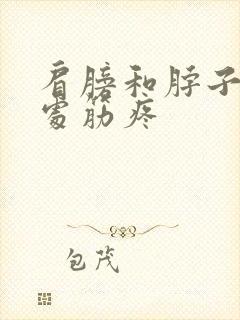 肩膀和脖子
处筋疼
包茂